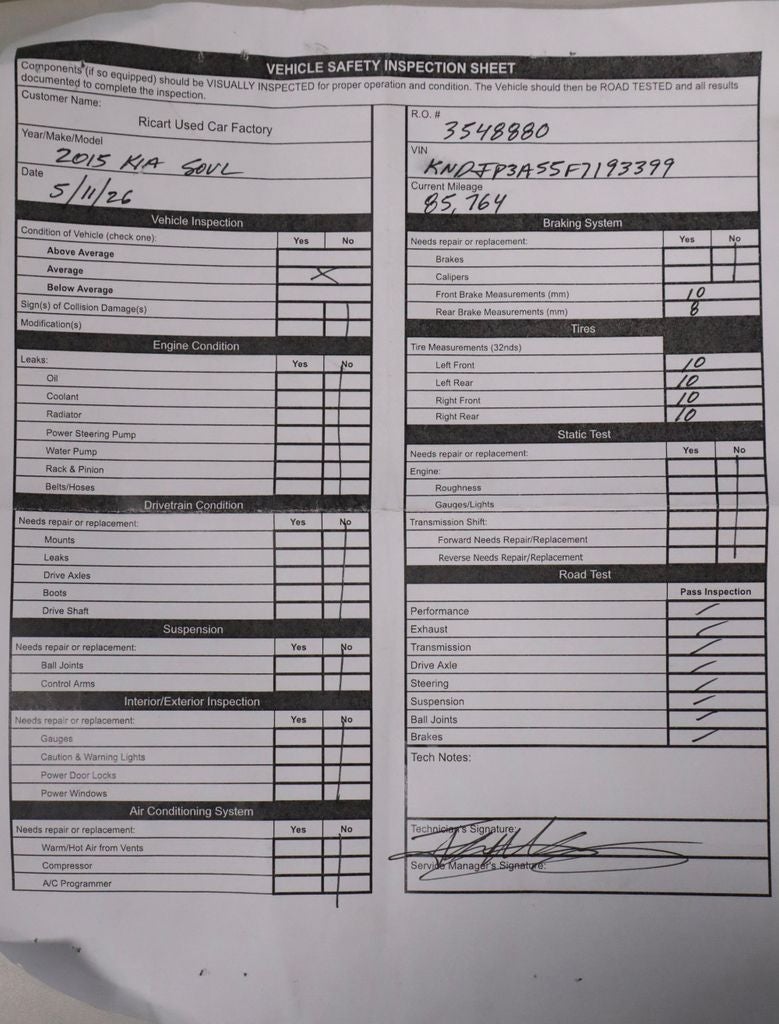 VEHICLE SAFETY INSPECTION SHEET
Components (if so equipped) should be VISUALLY INSPECTED for proper operation and condition. The Vehicle should then be ROAD TESTED and all results
documented to complete the inspection.
Customer Name:
Ricart Used Car Factory
Year/Make/Model
2015 KIA SOUL
Date
5/11/26
Vehicle Inspection
Condition of Vehicle (check one): Yes No
Above Average
Average X
Below Average
Sign(s) of Collision Damage(s)
Modification(s)
Engine Condition
Leaks: Yes No
Oil
Coolant
Radiator
Power Steering Pump
Water Pump
Rack & Pinion
Belts/Hoses
Drivetrain Condition
Needs repair or replacement: Yes No
Mounts
Leaks
Drive Axles
Boots
Drive Shaft
Suspension
Needs repair or replacement: Yes No
Ball Joints
Control Arms
Interior/Exterior Inspection
Needs repair or replacement: Yes No
Gauges
Caution & Warning Lights
Power Door Locks
Power Windows
Air Conditioning System
Needs repair or replacement: Yes No
Warm/Hot Air from Vents
Compressor
A/C Programmer
R.O. #
3548880
VIN
KNDJP3A55F7193399
Current Mileage
85,764
Braking System
Needs repair or replacement: Yes No
Brakes
Calipers
Front Brake Measurements (mm) 10
Rear Brake Measurements (mm) 8
Tires
Tire Measurements (32nds)
Left Front 10
Left Rear 10
Right Front 10
Right Rear 10
Static Test
Needs repair or replacement: Yes No
Engine:
Roughness
Gauges/Lights
Transmission Shift:
Forward Needs Repair/Replacement
Reverse Needs Repair/Replacement
Road Test
Pass Inspection
Performance
Exhaust
Transmission
Drive Axle
Steering
Suspension
Ball Joints
Brakes
Tech Notes:
Technician's Signature:
Service Manager's Signature: